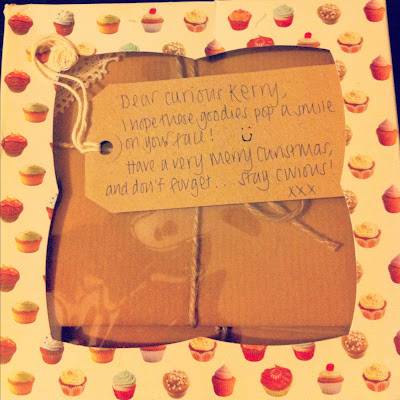 Dear curious Kerry,
I hope these goodies pop a smile
on your face!
Have a very Merry Christmas,
and don't forget... stay curious!
xxx